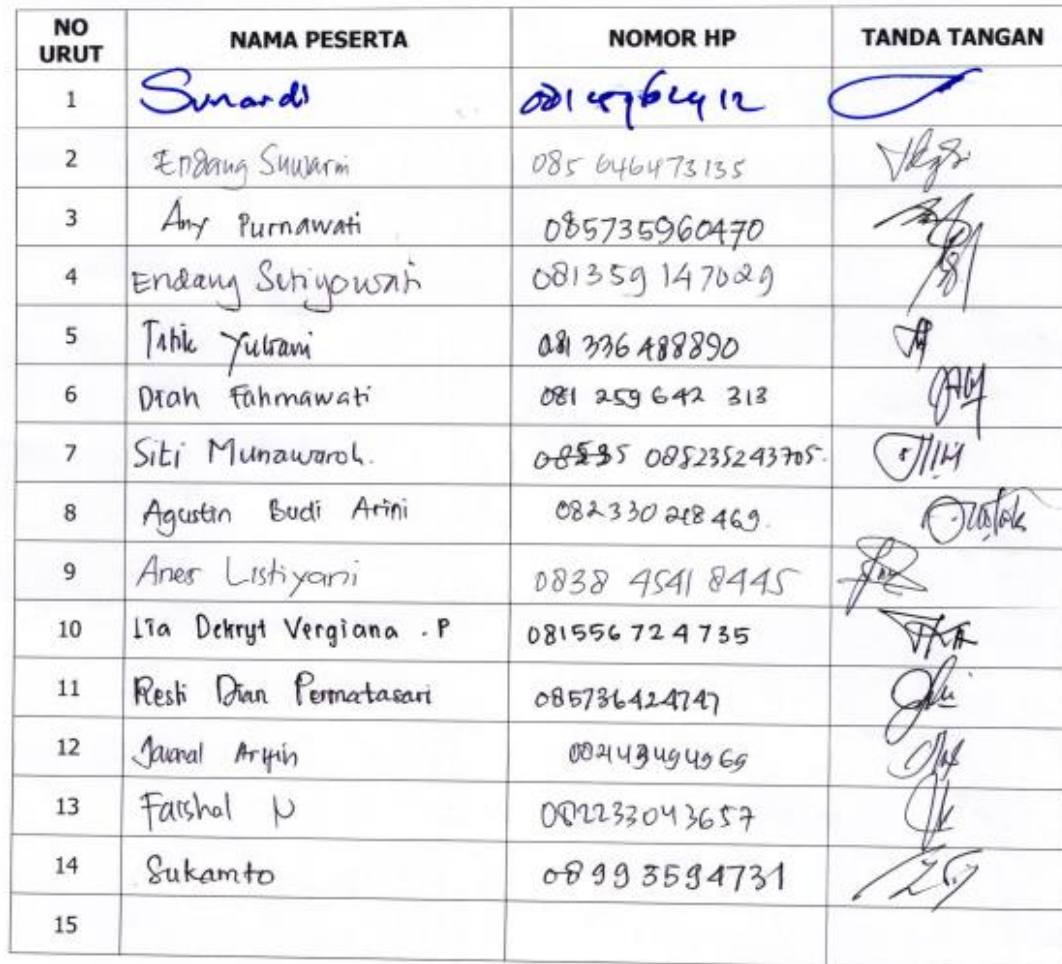 NO URUT NAMA PESERTA NOMOR HP TANDA TANGAN
1 Sunardi
2 Endang Suwarni 085 646473135
3 Any Purnawati 085735960470
4 Endang Setiyowati 081359 147029
5 Titik Yuliani 081 336 488890
6 Diah Fahmawati 081 259 642 313
7 Siti Munawaroh. 085235243705.
8 Agustin Budi Arini 082330 218 469.
9 Anes Listiyani 0838 4541 8445
10 Lia Dekryt Vergiana . P 081556 724735
11 Resti Dian Permatasari 085736424747
12 Arifin
13 Faishal N 082233043657
14 Sukamto 08993594731
15